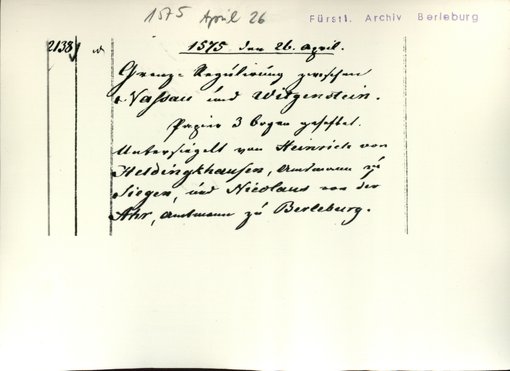 1575 April 26
Fürstl. Archiv Berleburg
2138
1575 den 26. April.
Grenz-Regulirung zwischen
Nassau und Witgenstein.
Papier 3 Bogen geheftet.
Untersiegelt von Heinrich von
Heldinghausen, Amtmann zu
Siegen, und Nicolaus von der
Ahr, Amtmann zu Berleburg.